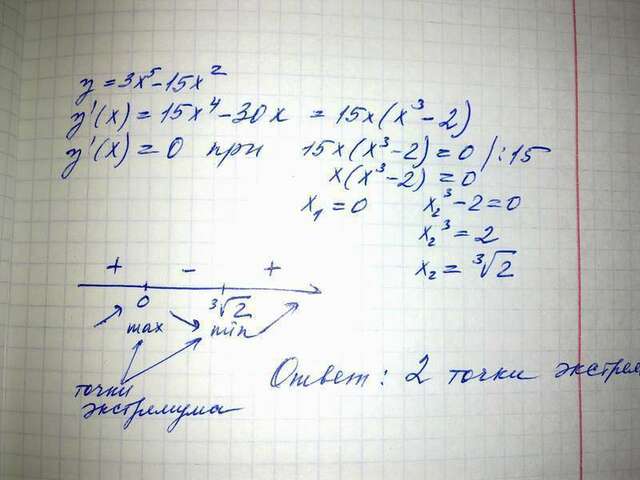 y = 3x⁵ - 15x²
y'(x) = 15x⁴ - 30x = 15x(x³ - 2)
y'(x) = 0 при 15x(x³ - 2) = 0 / : 15
x(x³ - 2) = 0
x₁ = 0 x₂³ - 2 = 0
x₂³ = 2
x₂ = ³√2
+ - +
0 ³√2
max min
точки
экстремума
Ответ: 2 точки экстрем